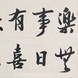 樂無
事日
有喜